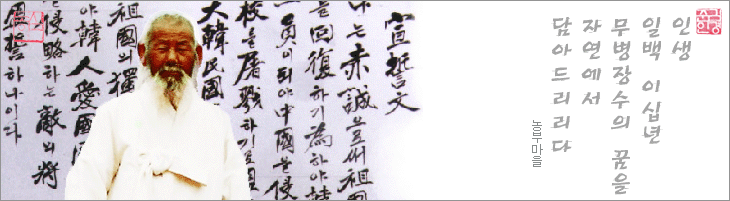 인생
일백 이십년
무병장수의 꿈을
자연에서
담아드리리다
농부마을
宣誓文
나는 赤誠으로써 祖國
를 回復하기 爲하야 韓
一員이 되야 中國을 侵
校를 屠戮하기로
大韓民國
祖國의 獨
야 韓人愛國
侵略하는 敵의 將
誓하나이다